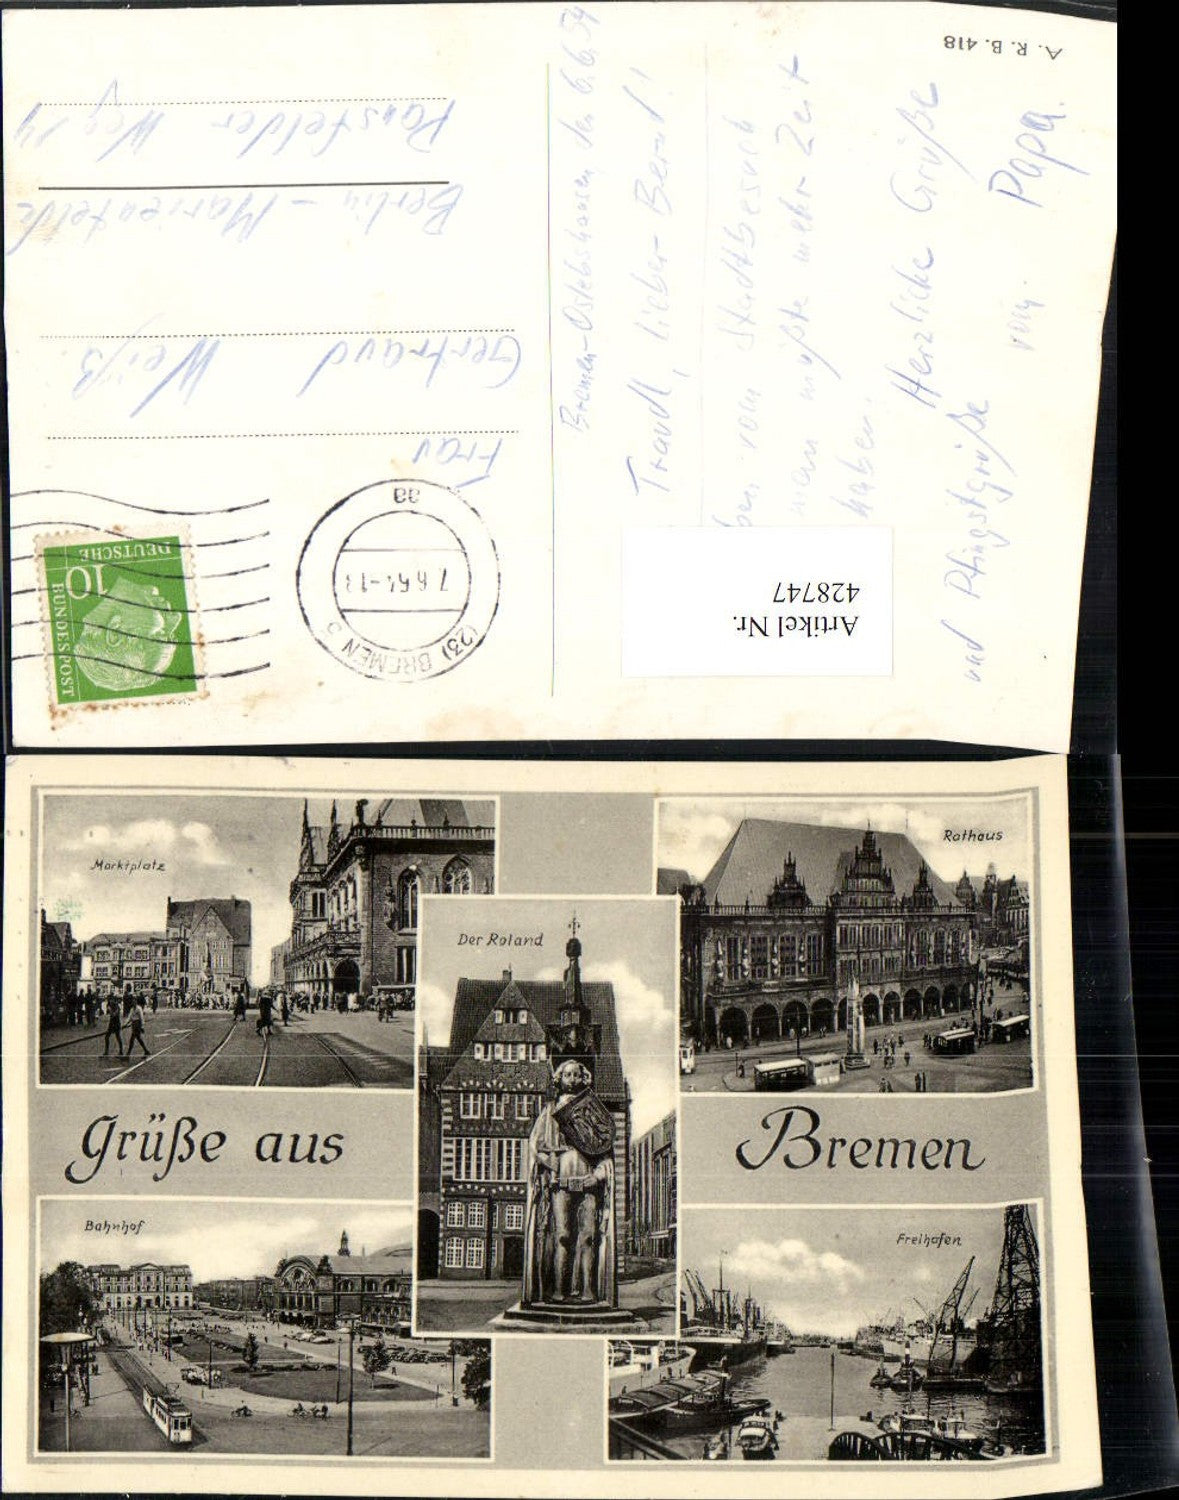 A. R. B. 418
Bremen-Oslebshausen den 6.6.54
Traudl, lieber Bernd!
vom Stadtbesuch
man müßte mehr Zeit
haben.
Herzliche Grüße
und Pfingstgrüße vom Papa.
Frau
Gertraud Weiß.
Berlin-Marienfelde
Weg 14
DEUTSCHE
BUNDESPOST
10
(23) BREMEN 5
7.6.54-13
aa
Artikel Nr.
428747
Marktplatz
Rathaus
Der Roland
Grüße aus Bremen
Bahnhof
Freihafen